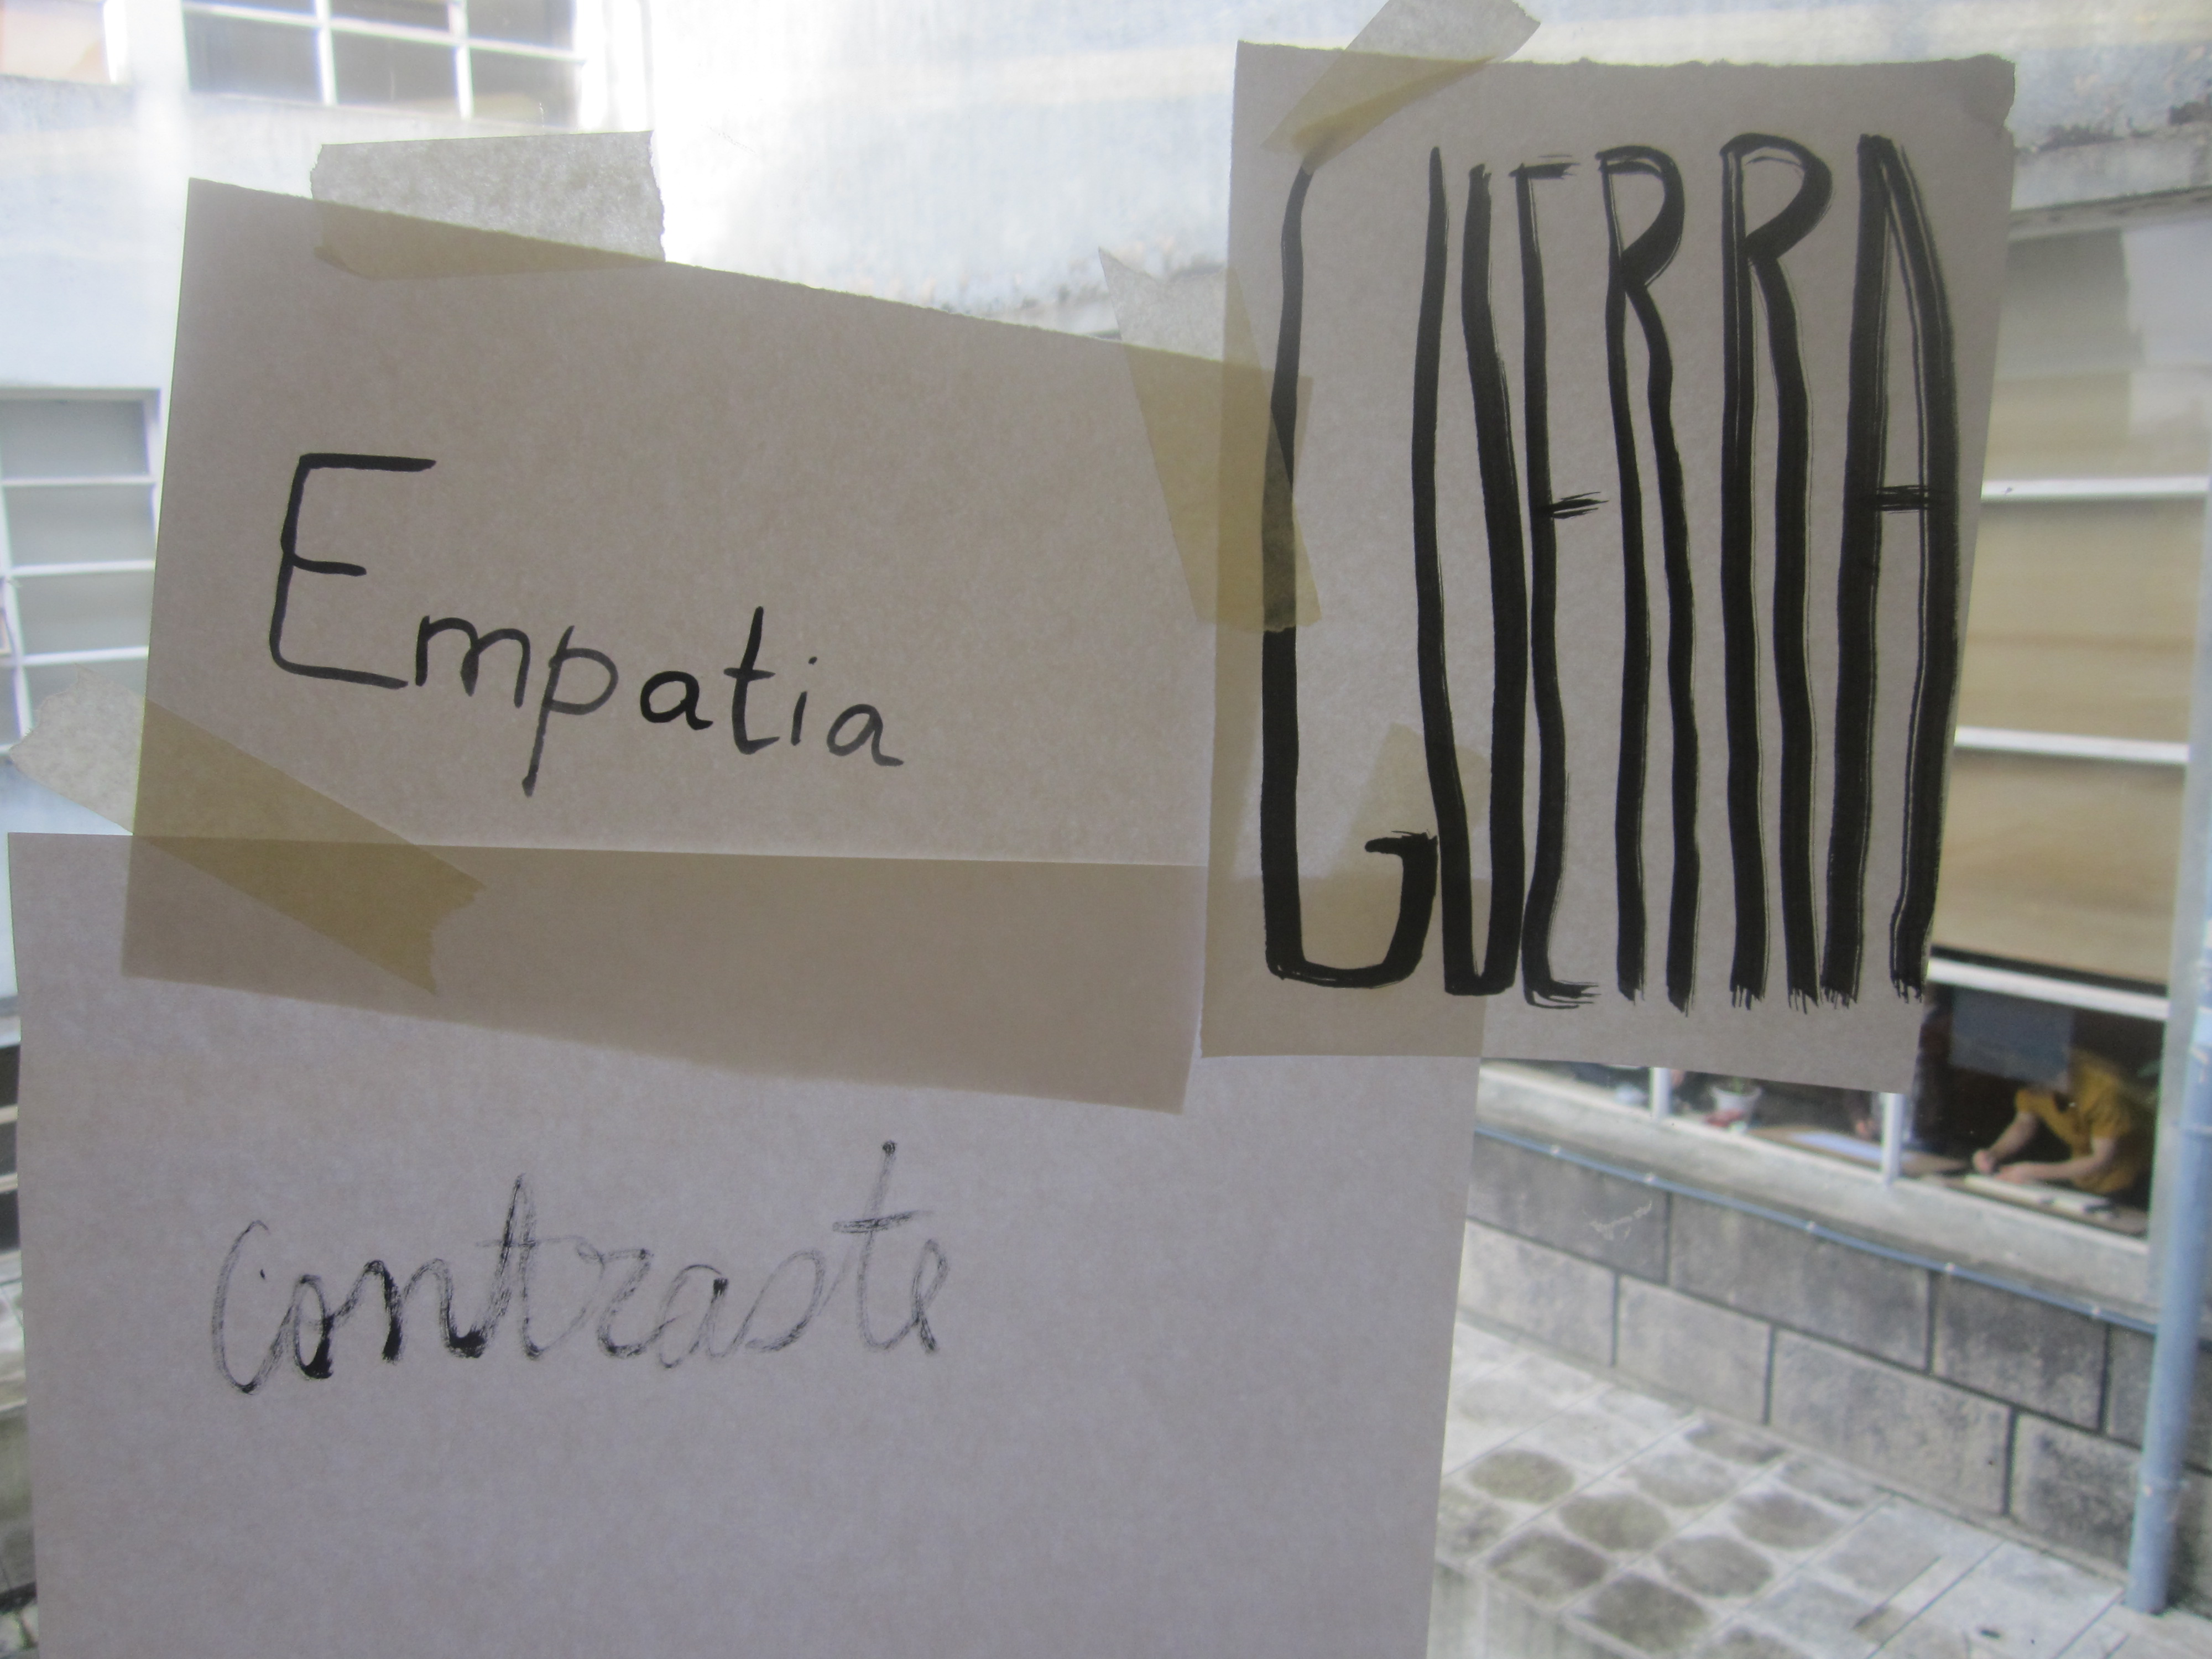 Empatia
GUERRA
contraste